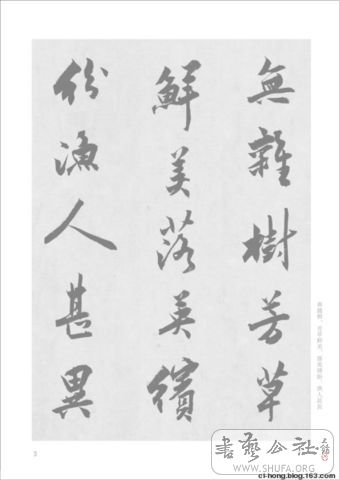 無雜樹芳草
鮮美落英繽
紛漁人甚異
無雜樹，芳草鮮美，落英繽紛。漁人甚異
3
書藝公社
WWW.SHUFA.ORG
cf-hong.blog.163.com